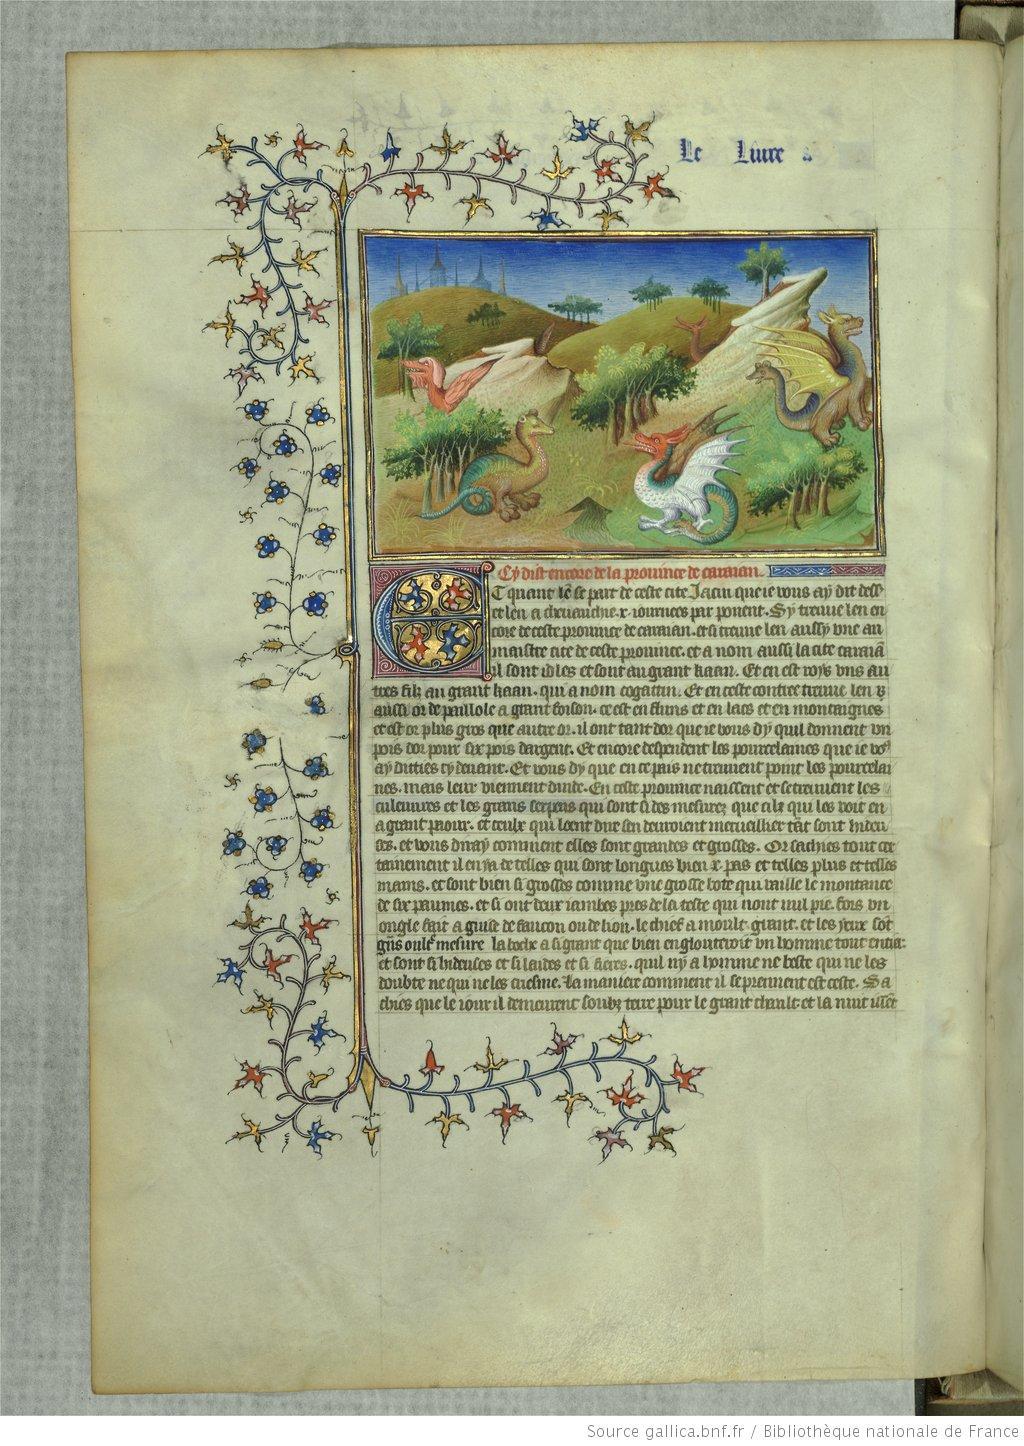 Le Livre
Cy dist encore de la prouince de caraian.
Et quant len se part de ceste cite Jacin que ie vous ay dit dess
et len a cheuauchie .x. iournees par ponent. Sy treuue len en
core de ceste prouince de caraian. et si treuue len aussy vne au
maistre cite de ceste prouince. et a nom aussi la cite caraia
il sont idles et sont au grant kaan. Et en est roys vns au
tres filz au grant kaan. qui a nom cogatin. Et en ceste contree treuue len
aussi or de paillole a grant foison. ce est en fluns et en lacs et en montaignes
et est or plus gros que autre or. il ont tant dor que ie vous dy quil donnent vn
pois dor pour six pois dargent. Et encore despendent les pourcelaines que ie vo9
ay dittes cy deuant. Et vous dy que en ce pais ne treuuent point les pourcelai
nes. mais leur viennent dinde. En ceste prouince naissent et se treuuent les
culeuures et les grans serpens qui sont si des mesurez que cilz qui les voit en
a grant paour. et ceulx qui loent dire sen deuroient merueillier tant sont hideu
ses. et vous diray comment elles sont grandes et grosses. Or sachies tout cer
tainement il en ya de telles qui sont longues bien .x. pas et telles plus et telles
mains. et sont bien si grosses comme vne grosse bote qui vaille le montance
de six paumes. et si ont deux iambes pres de la teste qui nont nul pie. fors vn
ongle fait a guise de faucon ou de lion. le chief a moult grant. et les yeux sont
mesure la boche a si grant que bien engloutiroit vn homme tout entier
et sont si hideuses et si laides et si fieres. quil ny a homme ne beste qui ne les
doubte ne qui ne les criesme. La maniere comment il se prennent est ceste. Sa
chies que le iour il demeurent soubz terre pour le grant chault et la nuit issent
Source gallica.bnf.fr / Bibliothèque nationale de France